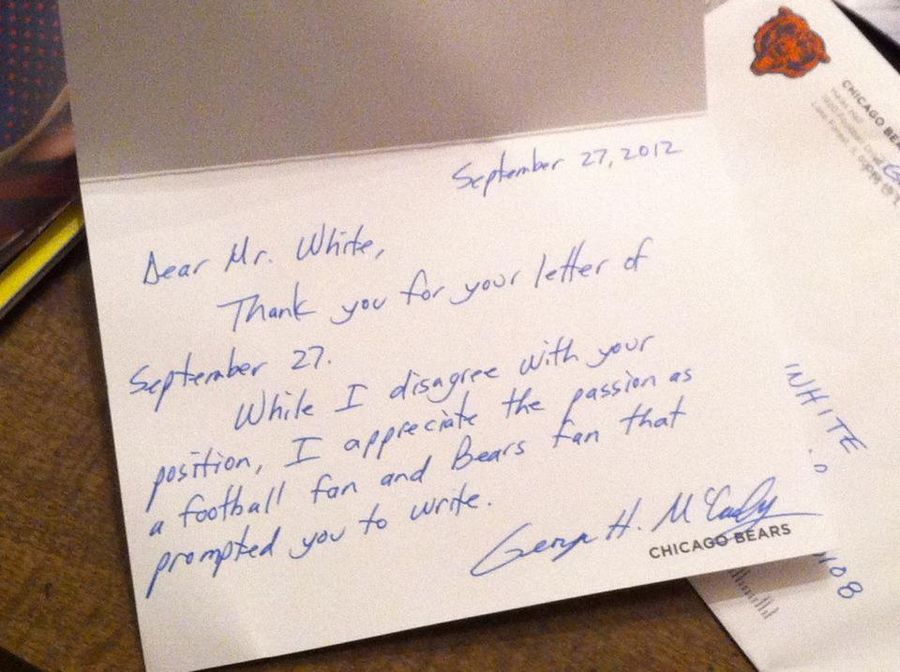 September 27, 2012
Dear Mr. White,
Thank you for your letter of
September 27.
While I disagree with your
position, I appreciate the passion as
a football fan and Bears fan that
prompted you to write.
George H. McCaskey
CHICAGO BEARS
CHICAGO BEA
Halas Hall
WHITE